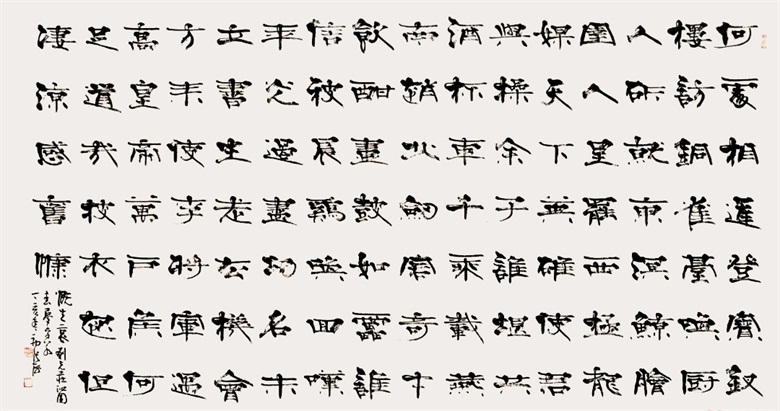 何處相逢登寶釵
樓訪銅雀臺喚厨
人斫就東溟鯨膾
圉人呈罷西極龍
媒天下英雄使君
與操余子誰堪共
酒杯車千乘載燕
南趙北劍客奇才
飲酣畫鼓如雷誰
信被晨鷄喚回嘆
年光過盡功名未
立書生老去機會
方來使李將軍遇
高皇帝萬戶侯何
足道哉披衣起但
淒涼感舊慷
慨生哀劉克莊沁園
春夢
丁亥年初